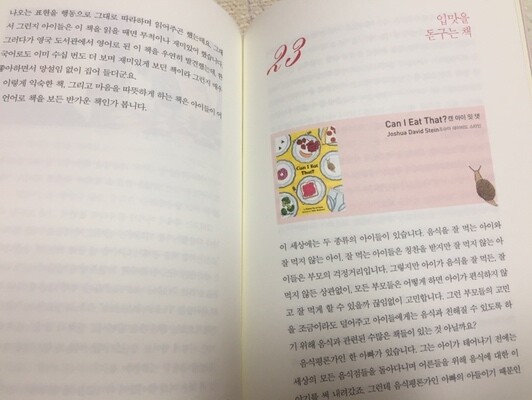 나오는 표현을 행동으로 그대로 따라하며 읽어주곤 했는데요, 그래
서 그런지 아이들은 이 책을 읽을 때면 무척이나 재미있게 봤습니다.
그러다가 영국 도서관에서 영어로 된 이 책을 우연히 발견했는데, 한
국어로도 이미 수십 번도 더 보며 재미있게 보던 책이라 그런지 매우
좋아하면서 망설임 없이 집어 들더군요.
이렇게 익숙한 책, 그리고 마음을 따뜻하게 하는 책은 아이들이 어
언어로 책을 보든 반가운 책인가 봅니다.
23
입맛을
돋구는 책
Can I Eat That? 캔 아이 잇 댓
_Joshua David Stein
Can I Eat
That?
이 세상에는 두 종류의 아이들이 있습니다. 음식을 잘 먹는 아이와
잘 먹지 않는 아이. 잘 먹는 아이들은 칭찬을 받지만 잘 먹지 않는 아
이들은 부모의 걱정거리입니다. 그렇지만 아이가 음식을 잘 먹든, 잘
먹지 않든 상관없이, 모든 부모들은 어떻게 하면 아이가 편식하지 않
고 잘 먹게 할 수 있을까 끊임없이 고민합니다. 그런 부모들의 고민
을 조금이라도 덜어주고 아이들에게는 음식과 친해질 수 있도록 하
기 위해 음식과 관련된 수많은 책들이 있는 것 아닐까요?
음식평론가인 한 아빠가 있습니다. 그는 아이가 태어나기 전에는
세상의 모든 음식점들을 돌아다니며 어른들을 위해 음식에 대한 이
야기를 써 내려갔죠. 그런데 음식평론가인 아빠의 아들이기 때문인